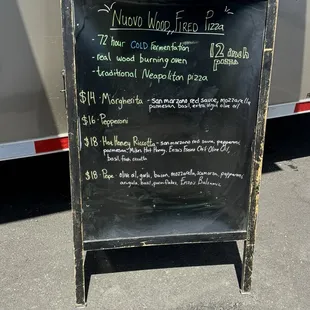 Nuovo Wood Fired Pizza
- 72 hour COLD Fermentation
- real wood burning oven
- traditional Neapolitan pizza
12 inch
$14 - Margherita - San marzano red sauce, mozzarella,
parmesan, basil, extra virgin olive oil
$16 - Pepperoni
$18 - Hot Honey Riccotta - san marzano red sauce, pepperoni,
parmesan, Hot Honey, Olive Oil,
basil, fresh ricotta
$18 - Pope - olive oil, garlic, bacon, mozzarella, scamorza, pepperoni,
arugula, basil, Balsamic